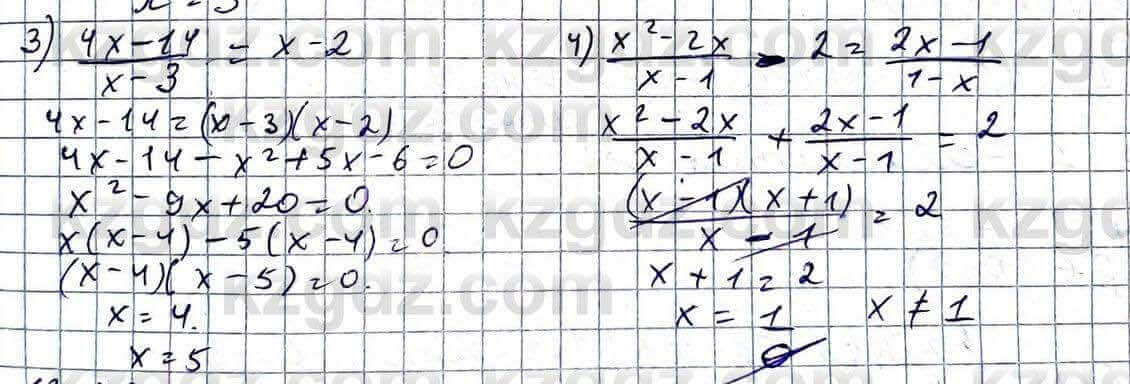 3) (4x-14)/(x-3) = x-2
4x-14=(x-3)(x-2)
4x-14-x²+5x-6=0
x²-9x+20=0.
x(x-4)-5(x-4)=0.
(x-4)(x-5)=0.
x=4.
x=5
4) (x²-2x)/(x-1) - 2 = (2x-1)/(1-x)
(x²-2x)/(x-1) + (2x-1)/(x-1) = 2
((x-1)(x+1))/(x-1) = 2
x+1=2
x=1 x≠1
∅
kzgdz.com